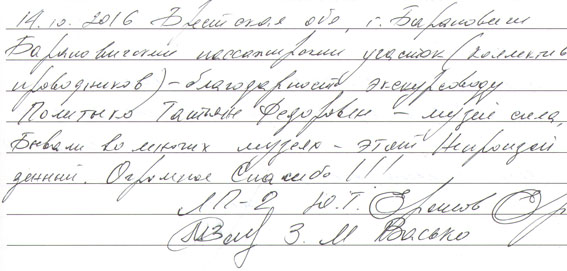 14.10.2016 Брестская обл, г. Барановичи
Барановичский пассажирский участок (коллектив
проводников) – благодарность экскурсоводу
Политыко Татьяне Федоровне – музей сила,
Бывали во многих музеях – этот Непроизой
денный. Огромное Спасибо!!!
ЛП-2 Ю.Т.
З. М Васько